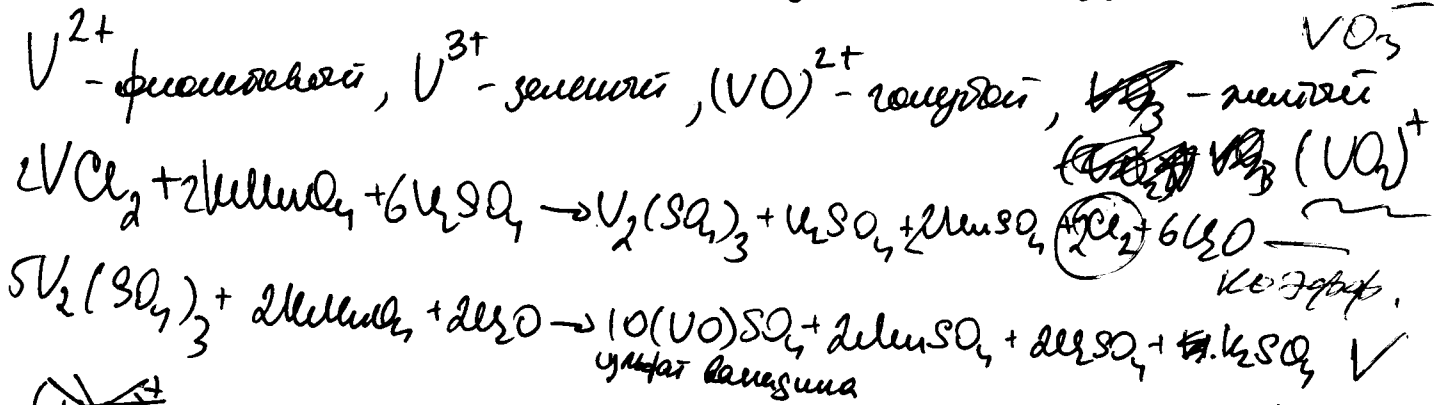 VO₃⁻
V²⁺ - фиолетовый, V³⁺ - зеленый, (VO)²⁺ - голубой, - желтый
(VO₂)⁺
2VCl₂ + 2KMnO₄ + 6H₂SO₄ → V₂(SO₄)₃ + K₂SO₄ + 2MnSO₄ + 2Cl₂ + 6H₂O —
коэфф.
5V₂(SO₄)₃ + 2KMnO₄ + 2H₂O → 10(VO)SO₄ + 2MnSO₄ + 2H₂SO₄ + K₂SO₄ V
ванадила